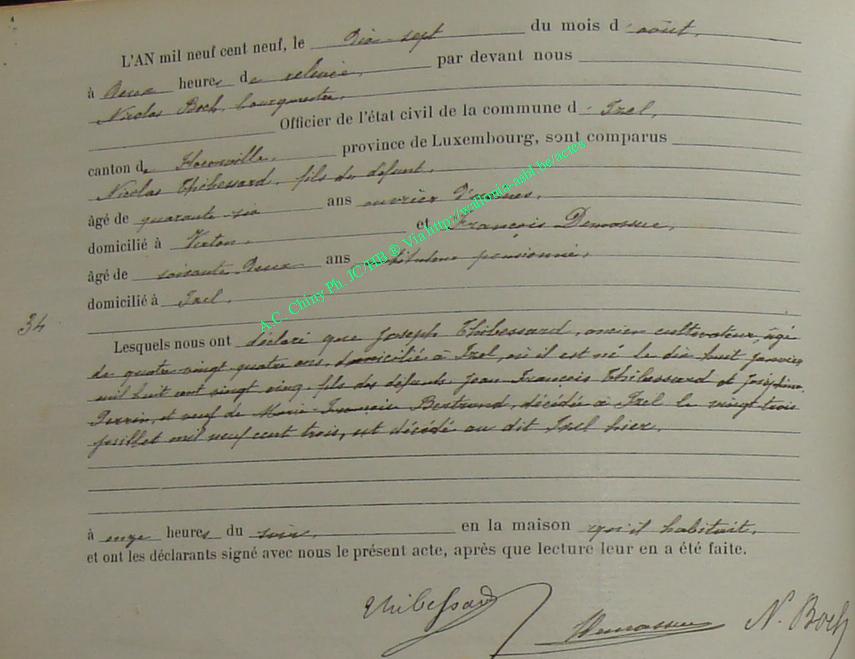 L'AN mil neuf cent neuf, le dix-sept du mois d'août,
à deux heures de relevée, par devant nous
Nicolas Boch, bourgmestre,
Officier de l'état civil de la commune d'Izel,
canton de Florenville, province de Luxembourg, sont comparus
Nicolas Thibessard, fils du défunt,
âgé de quarante-six ans ouvrier d'usines,
domicilié à Virton, et François Demasure,
âgé de soixante deux ans pensionné,
domicilié à Izel.
34
Lesquels nous ont déclaré que Joseph Thibessard, ancien cultivateur, âgé
de quatre-vingt quatre ans, domicilié à Izel, où il est né le dix huit janvier
mil huit cent vingt cinq, fils des défunts Jean François Thibessard et Joséphine
Perrin, et veuf de Marie Françoise Bertrand, décédée à Izel le vingt trois
juillet mil neuf cent trois, est décédé au dit Izel hier,
à onze heures du soir, en la maison qu'il habitait,
et ont les déclarants signé avec nous le présent acte, après que lecture leur en a été faite.
Thibessard N. Boch
A.C. Chiny Ph. JC HB ® Via http://wallonia-asbl.be/actes